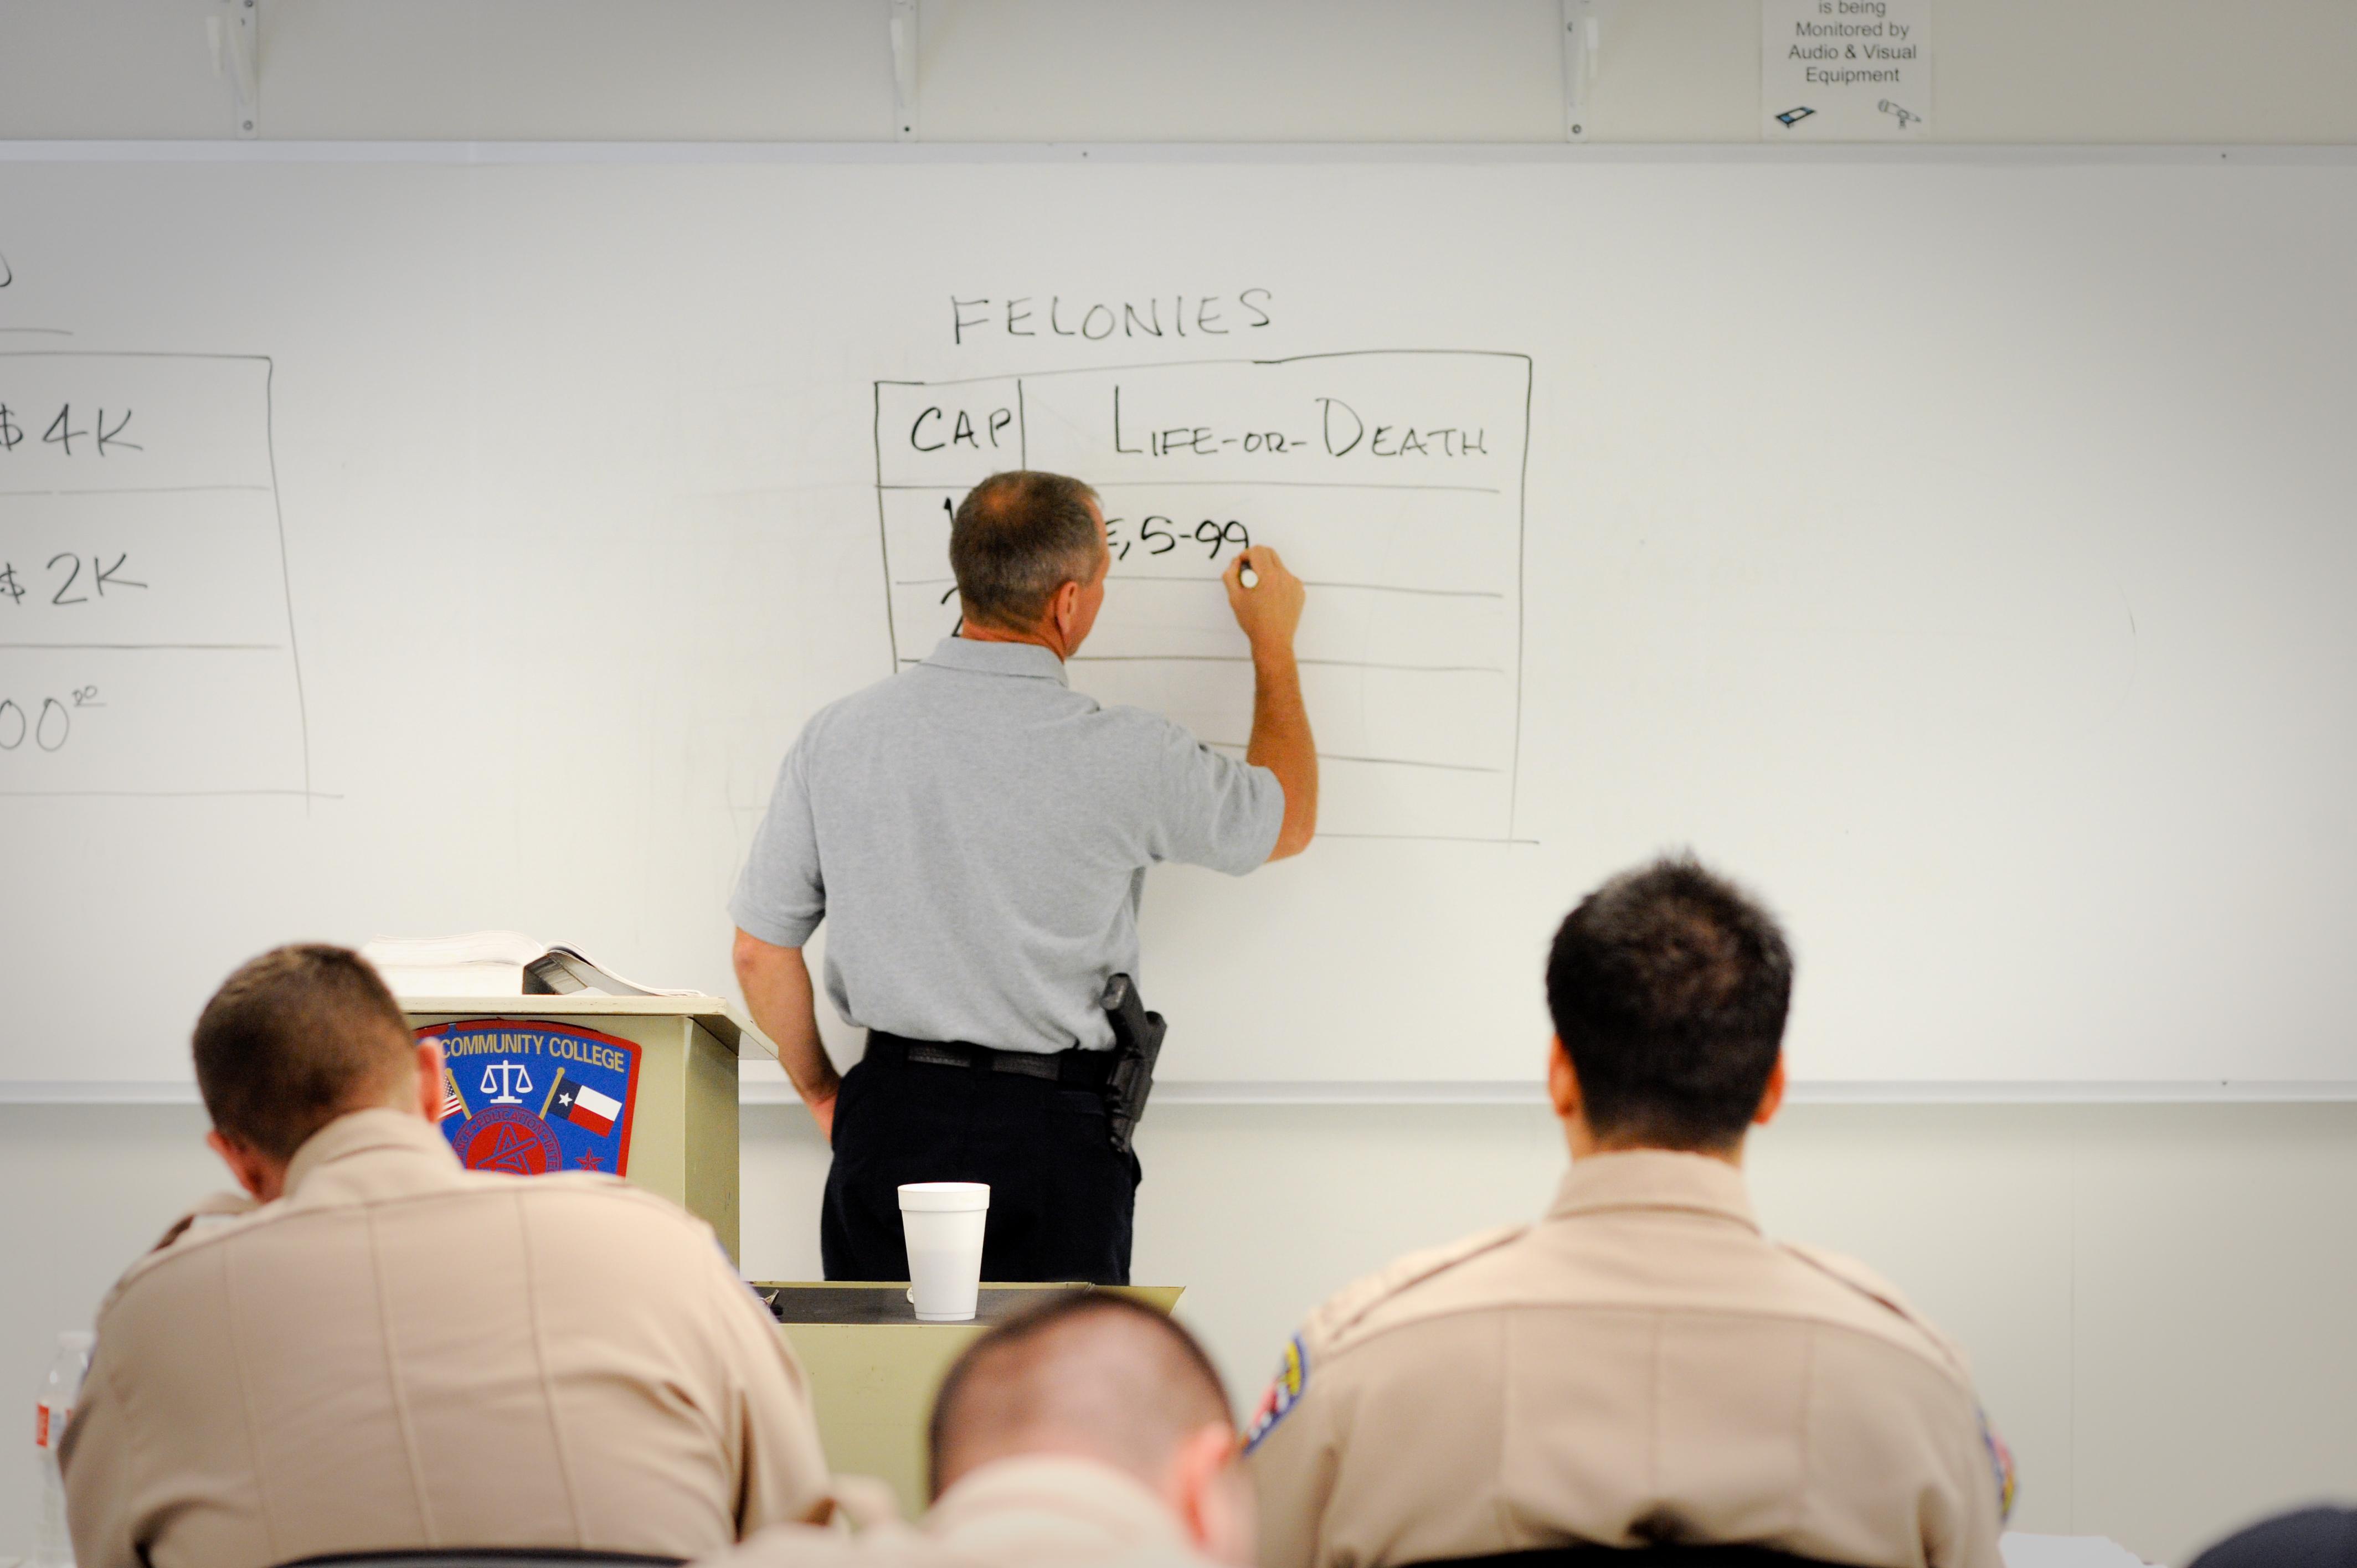 is being
Monitored by
Audio & Visual
Equipment
FELONIES
CAP LIFE-OR-DEATH
$4K
5-99
$2K
00⁰⁰
COMMUNITY COLLEGE